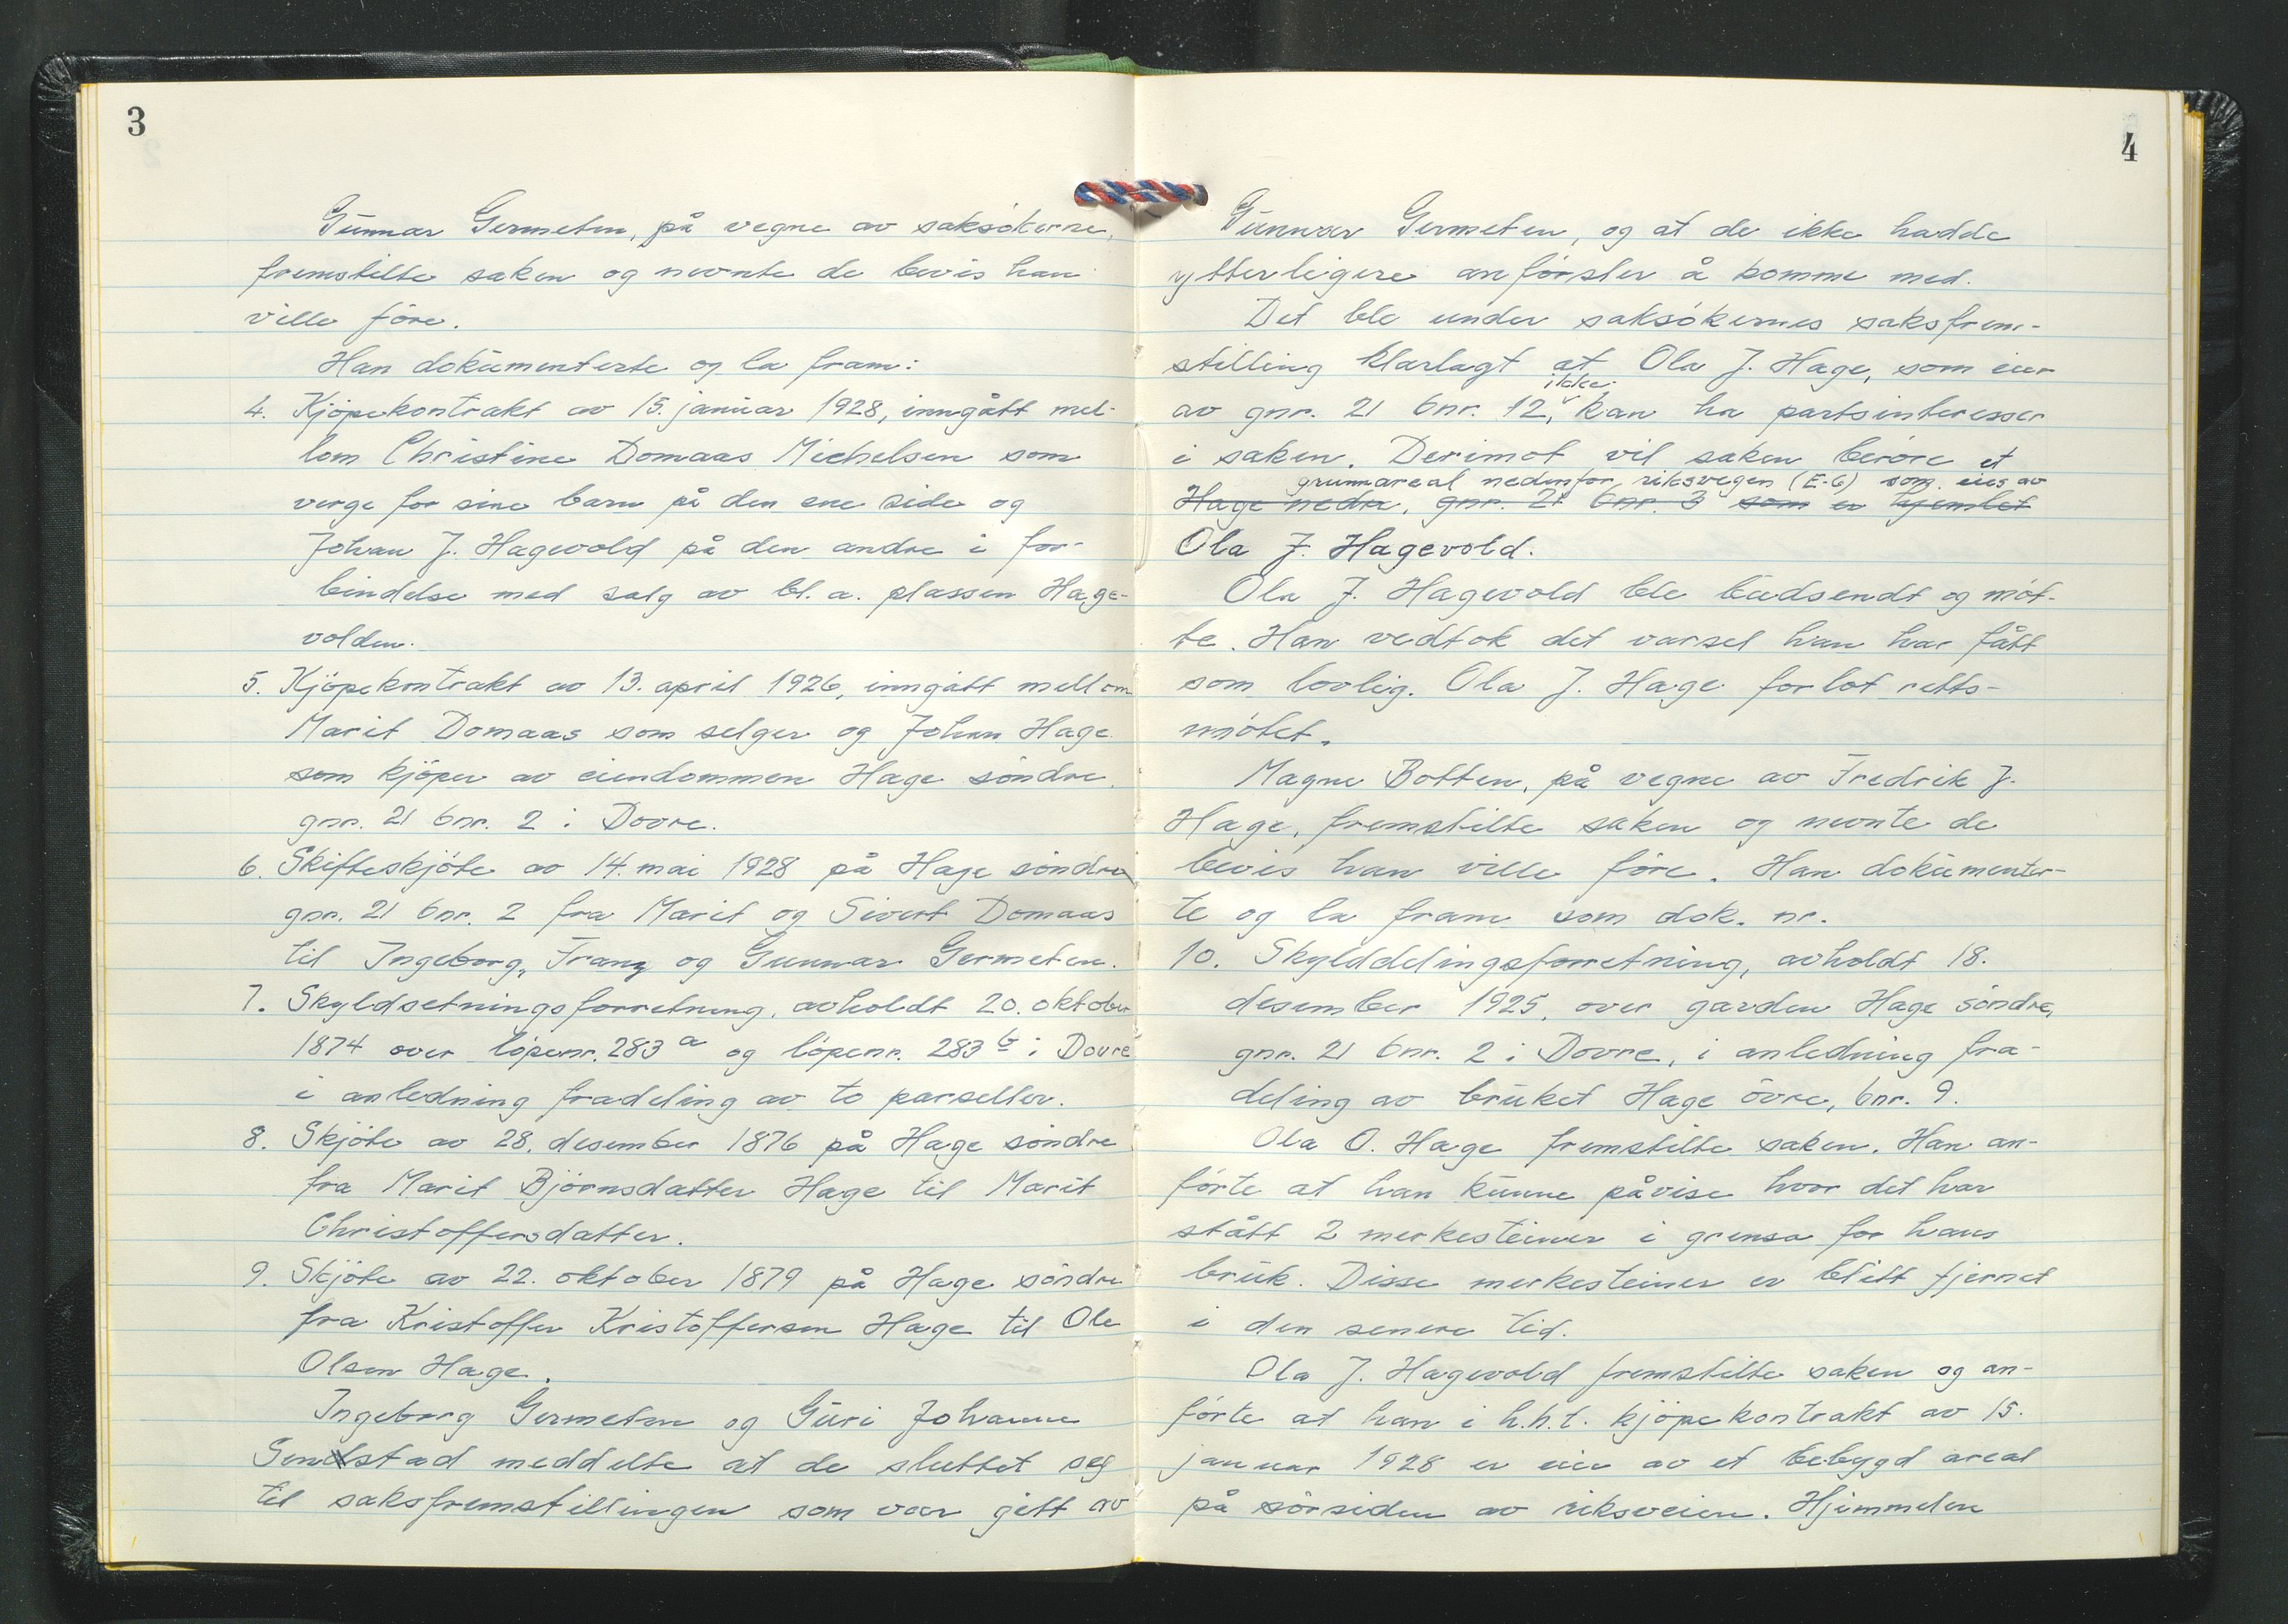 3
Gunnar Germeten, på vegne av saksökerne,
fremstilte saken og nevnte de bevis han
ville före.
Han dokumenterte og la fram:
4. Kjöpekontrakt av 15. januar 1928, inngått mel-
lom Christine Domaas Michelsen som
verge for sine barn på den ene side og
Johan J. Hagevold på den andre i for-
bindelse med salg av bl.a. plassen Hage-
volden.
5. Kjöpekontrakt av 13. april 1926, inngått mellom
Marit Domaas som selger og Johan Hage
som kjöper av eiendommen Hage söndre,
gnr. 21 bnr. 2 i Dovre.
6. Skifteskjöte av 14. mai 1928 på Hage söndre
gnr. 21 bnr. 2 fra Marit og Sivert Domaas
til Ingeborg, Franz og Gunnar Germeten.
7. Skyldsetningsforretning, avholdt 20. oktober
1874 over löpenr. 283 a og löpenr. 283 b i Dovre
i anledning fradeling av to parseller.
8. Skjöte av 28. desember 1876 på Hage söndre
fra Marit Björnsdatter Hage til Marit
Christoffersdatter.
9. Skjöte av 22. oktober 1879 på Hage söndre
fra Kristoffer Kristoffersen Hage til Ole
Olsen Hage.
Ingeborg Germeten og Guri Johanne
stad meddelte at de sluttet seg
til saksfremstillingen som var gitt av
4
Gunnar Germeten, og at de ikke hadde
ytterligere anförsler å komme med.
Det ble under saksökernes saksfrem-
stilling klarlagt at Ola J. Hage, som eier
ikke
av gnr. 21 bnr. 12, kan ha partsinteresser
i saken. Derimot vil saken beröre et
grunnareal nedenfor riksvegen (E-6) som eies av
Hage nedre, gnr. 21 bnr. 3 som er hjemlet
Ola J. Hagevold.
Ola J. Hagevold ble budsendt og möt-
te. Han vedtok det varsel han har fått
som lovlig. Ola J. Hage forlot retts-
mötet.
Magne Botten, på vegne av Fredrik J.
Hage, fremstilte saken og nevnte de
bevis han ville före. Han dokumenter-
te og la fram som dok. nr.
10. Skylddelingsforretning, avholdt 18.
desember 1925, over garden Hage söndre,
gnr. 21 bnr. 2 i Dovre, i anledning fra-
deling av bruket Hage övre, bnr. 9.
Ola O. Hage fremstilte saken. Han an-
förte at han kunne påvise hvor det har
stått 2 merkesteiner i grensa for hans
bruk. Disse merkesteiner er blitt fjernet
i den senere tid.
Ola J. Hagevold fremstilte saken og an-
förte at han i h.h.t. kjöpekontrakt av 15.
januar 1928 er eier av et bebygd areal
på sörsiden av riksveien. Hjemmelen